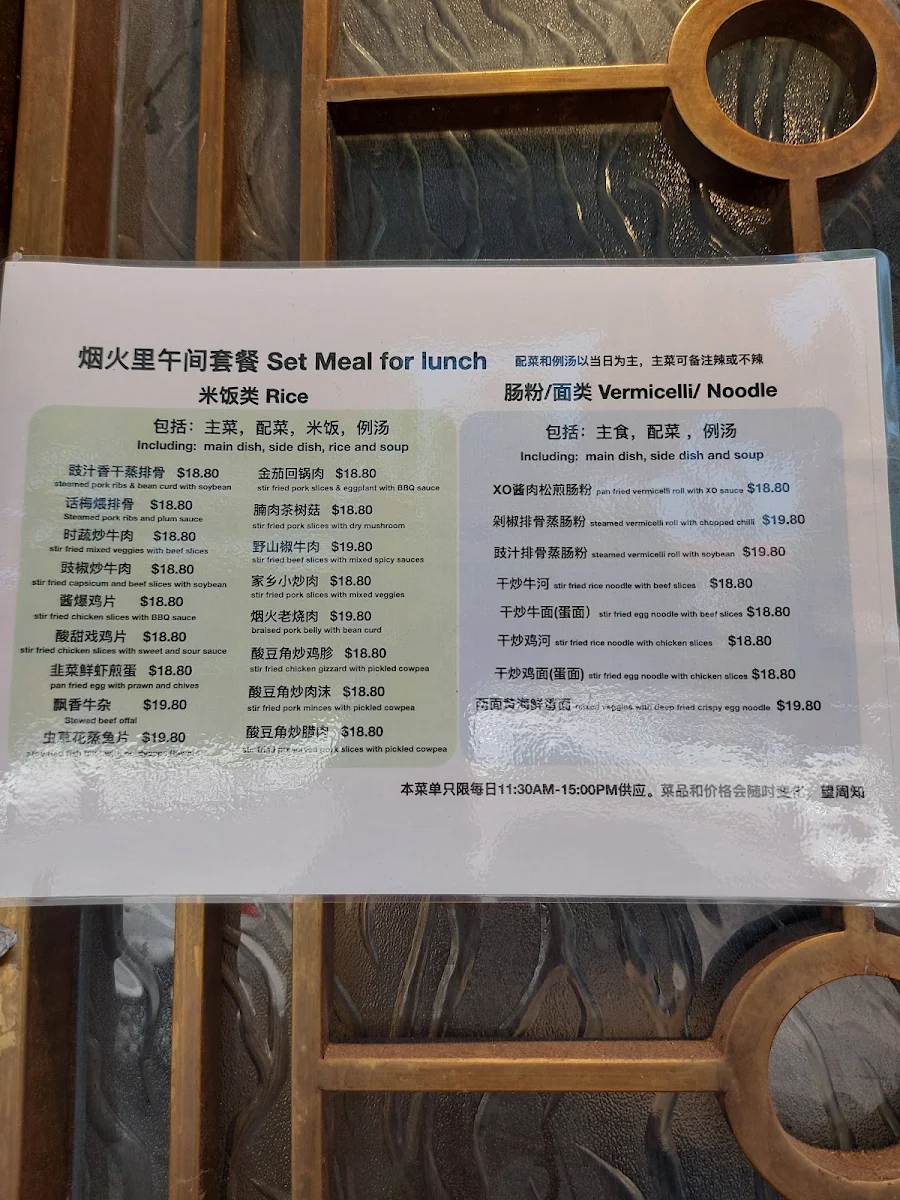 烟火里午间套餐 Set Meal for lunch 配菜和例汤以当日为主，主菜可备注辣或不辣
米饭类 Rice
包括：主菜，配菜，米饭，例汤
Including: main dish, side dish, rice and soup
豉汁香干蒸排骨 $18.80
steamed pork ribs & bean curd with soybean
话梅煨排骨 $18.80
Steamed pork ribs and plum sauce
时蔬炒牛肉 $18.80
stir fried mixed veggies with beef slices
豉椒炒牛肉 $18.80
stir fried capsicum and beef slices with soybean
酱爆鸡片 $18.80
stir fried chicken slices with BBQ sauce
酸甜戏鸡片 $18.80
stir fried chicken slices with sweet and sour sauce
韭菜鲜虾煎蛋 $18.80
pan fried egg with prawn and chives
飘香牛杂 $19.80
Stewed beef offal
虫草花蒸鱼片 $19.80
fish
金茄回锅肉 $18.80
stir fried pork slices & eggplant with BBQ sauce
腩肉茶树菇 $18.80
stir fried pork slices with dry mushroom
野山椒牛肉 $19.80
stir fried beef slices with mixed spicy sauces
家乡小炒肉 $18.80
stir fried pork slices with mixed veggies
烟火老烧肉 $19.80
braised pork belly with bean curd
酸豆角炒鸡胗 $18.80
stir fried chicken gizzard with pickled cowpea
酸豆角炒肉沫 $18.80
stir fried pork minces with pickled cowpea
酸豆角炒腊肉 $18.80
stir fried preserved pork slices with pickled cowpea
肠粉/面类 Vermicelli/ Noodle
包括：主食，配菜 ，例汤
Including: main dish, side dish and soup
XO酱肉松煎肠粉 pan fried vermicelli roll with XO sauce $18.80
剁椒排骨蒸肠粉 steamed vermicelli roll with chopped chilli $19.80
豉汁排骨蒸肠粉 steamed vermicelli roll with soybean $19.80
干炒牛河 stir fried rice noodle with beef slices $18.80
干炒牛面(蛋面） stir fried egg noodle with beef slices $18.80
干炒鸡河 stir fried rice noodle with chicken slices $18.80
干炒鸡面(蛋面) stir fried egg noodle with chicken slices $18.80
海鲜蛋面 mixed veggies with deep fried crispy egg noodle $19.80
本菜单只限每日11:30AM-15:00PM供应。菜品和价格会随时变化，望周知